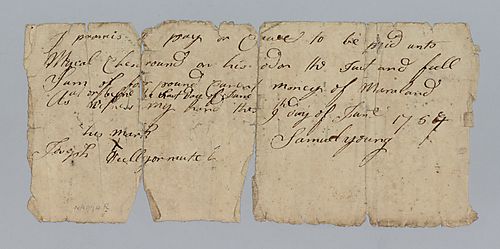 I promis pay or Cause to be paid unto
Mical Chesround or his odor the Just and full
Sum of pound Curent money of Maraland
as on or before the last day of June
As witness my hand the 9 day of June 1754
his mark
Joseph X
Samuel Young